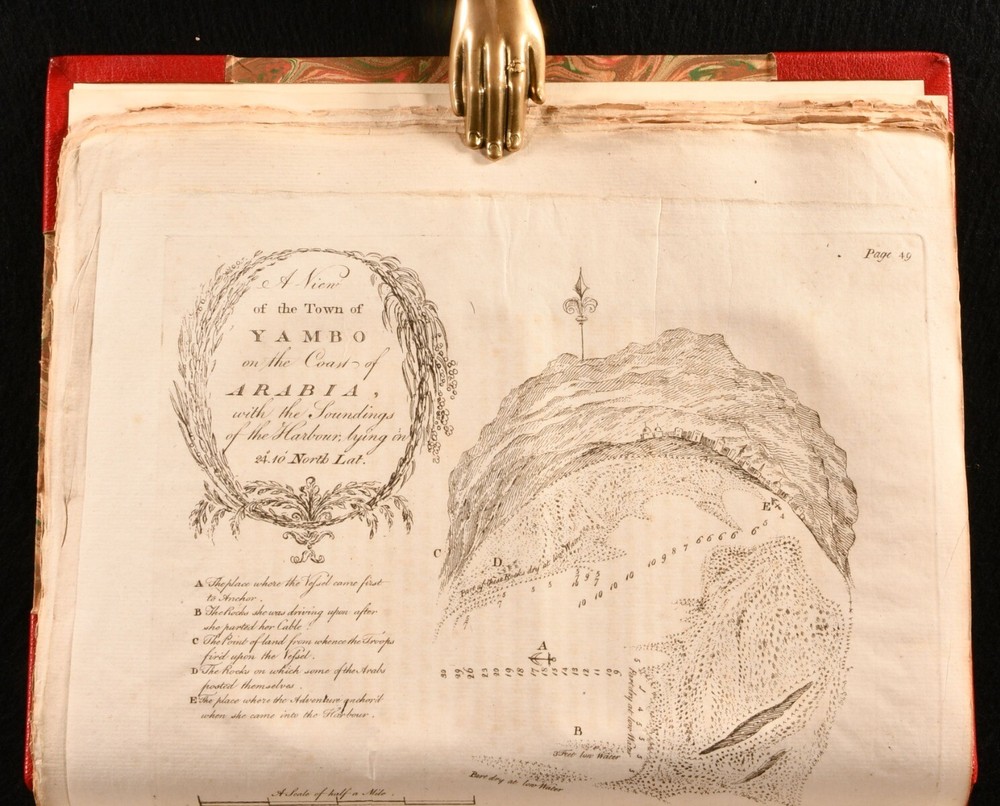 Page 49
A View
of the Town of
YAMBO
on the Coast of
ARABIA,
with the Soundings
of the Harbour, lying in
24.10 North Lat.
A The place where the Vessel came first
to Anchor.
B The Rocks she was driving upon after
she parted her Cable.
C The Point of land from whence the Troops
fir'd upon the Vessel.
D The Rocks on which some of the Arabs
posted themselves.
E The place where the Adventure anchor'd
when she came into the Harbour.
C
D
E
Part of these Rocks dry at low Water
10 9 8 7 6 6 6 6 6 5
10 10 10 10
A
B
2 Feet low Water
Bare dry at low Water
A Scale of half a Mile.